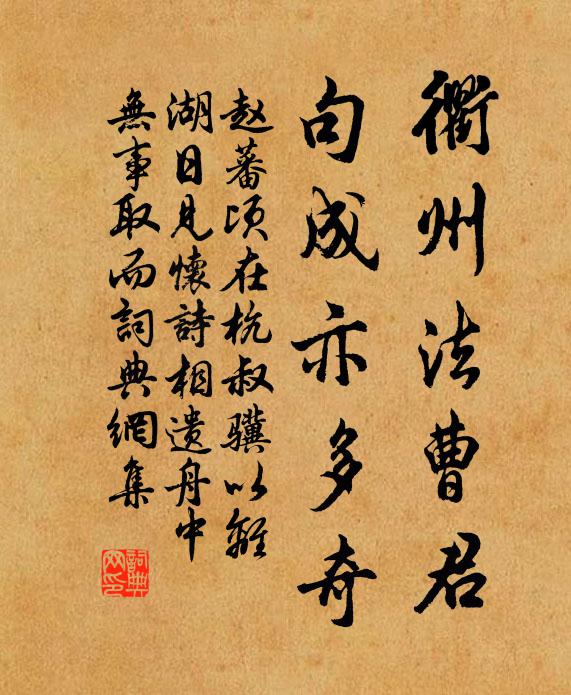 衢州法曹君
句成亦多奇
赵蕃顷在杭叔骥以離
湖日見懷詩相遗舟中
無事取而詞典網集
詞典
网印